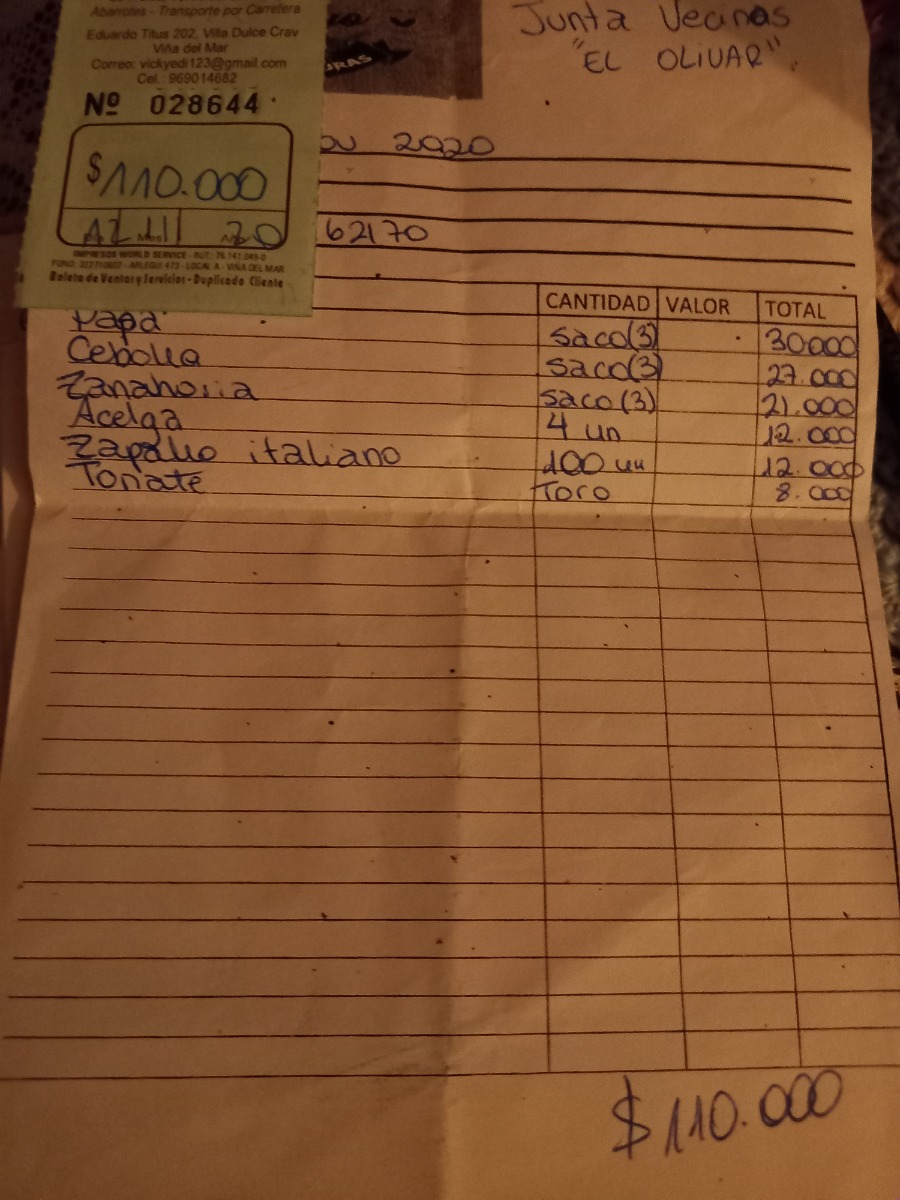 Abarrotes - Transporte por Carretera
Eduardo Titus 202, Villa Dulce Crav
Viña del Mar
Correo: vickyedi123@gmail.com
Cel.: 969014682
Nº 028644
$110.000
12 11 20
IMPRESOS WORLD SERVICE - RUT.: 76.141.049-0
ARLEGUI 472 - LOCAL A - VIÑA DEL MAR
Boleta de Ventas y Servicios - Duplicado Cliente
Junta Vecinas
"EL OLIVAR"
2020
62170
CANTIDAD VALOR TOTAL
Papa saco(3) 30000
Cebolla saco(3) 27.000
Zanahoria saco(3) 21.000
Acelga 4 un 12.000
Zapallo italiano 100 un 12.000
Tomate Toro 8.000
$110.000